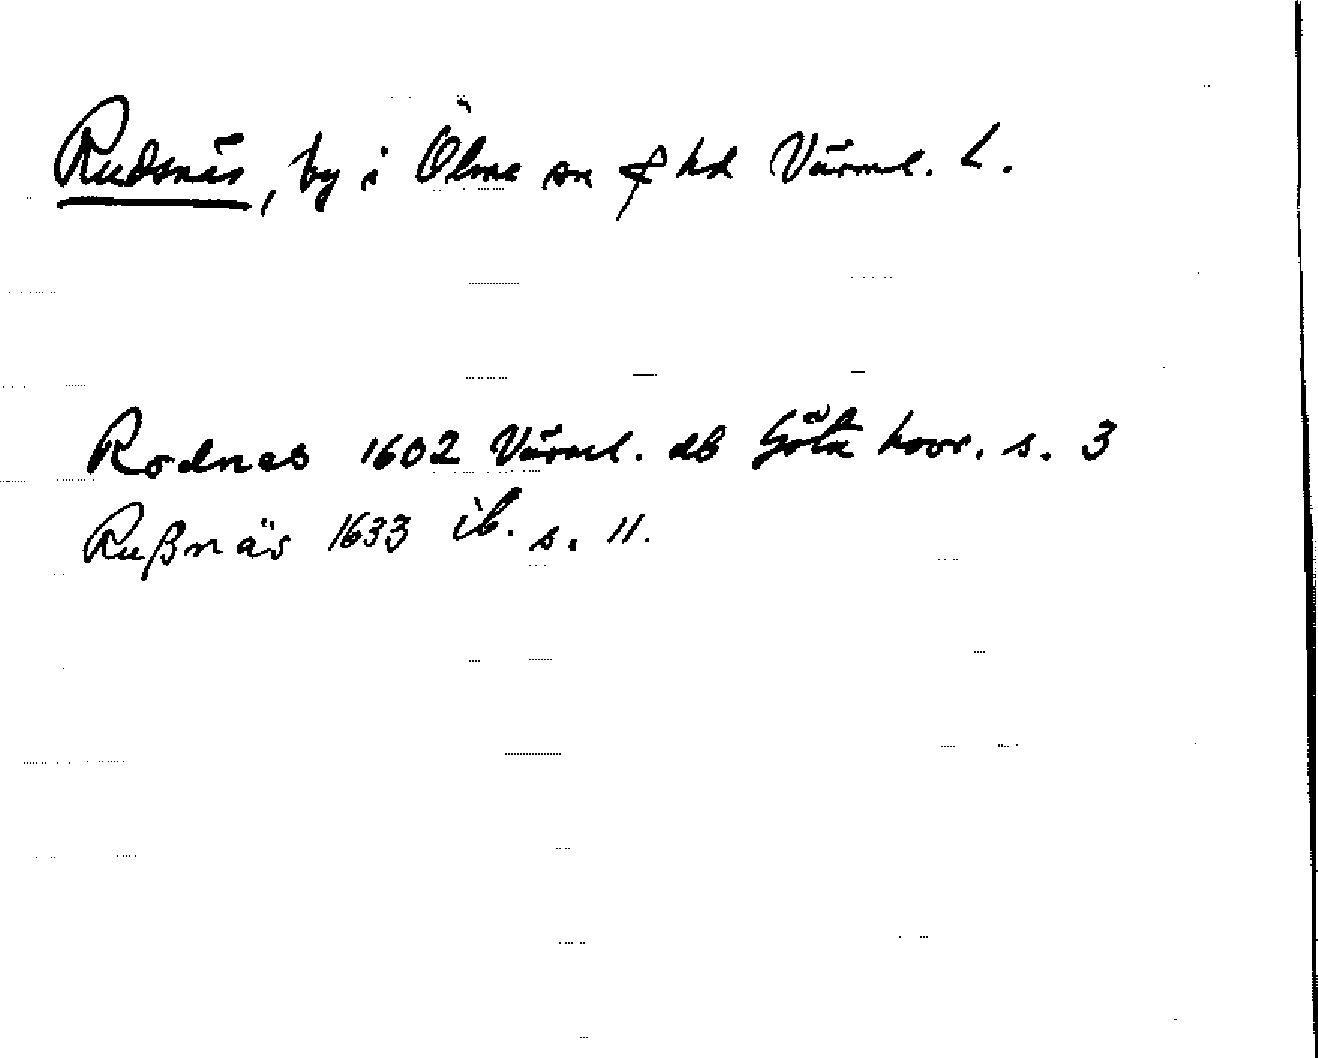 Rudsnäs, by i Ölme sn & hd Värml. L.
Rodnes 1602 Värml. db Göta hovr. s. 3
Rußnäs 1633 ib. s. 11.